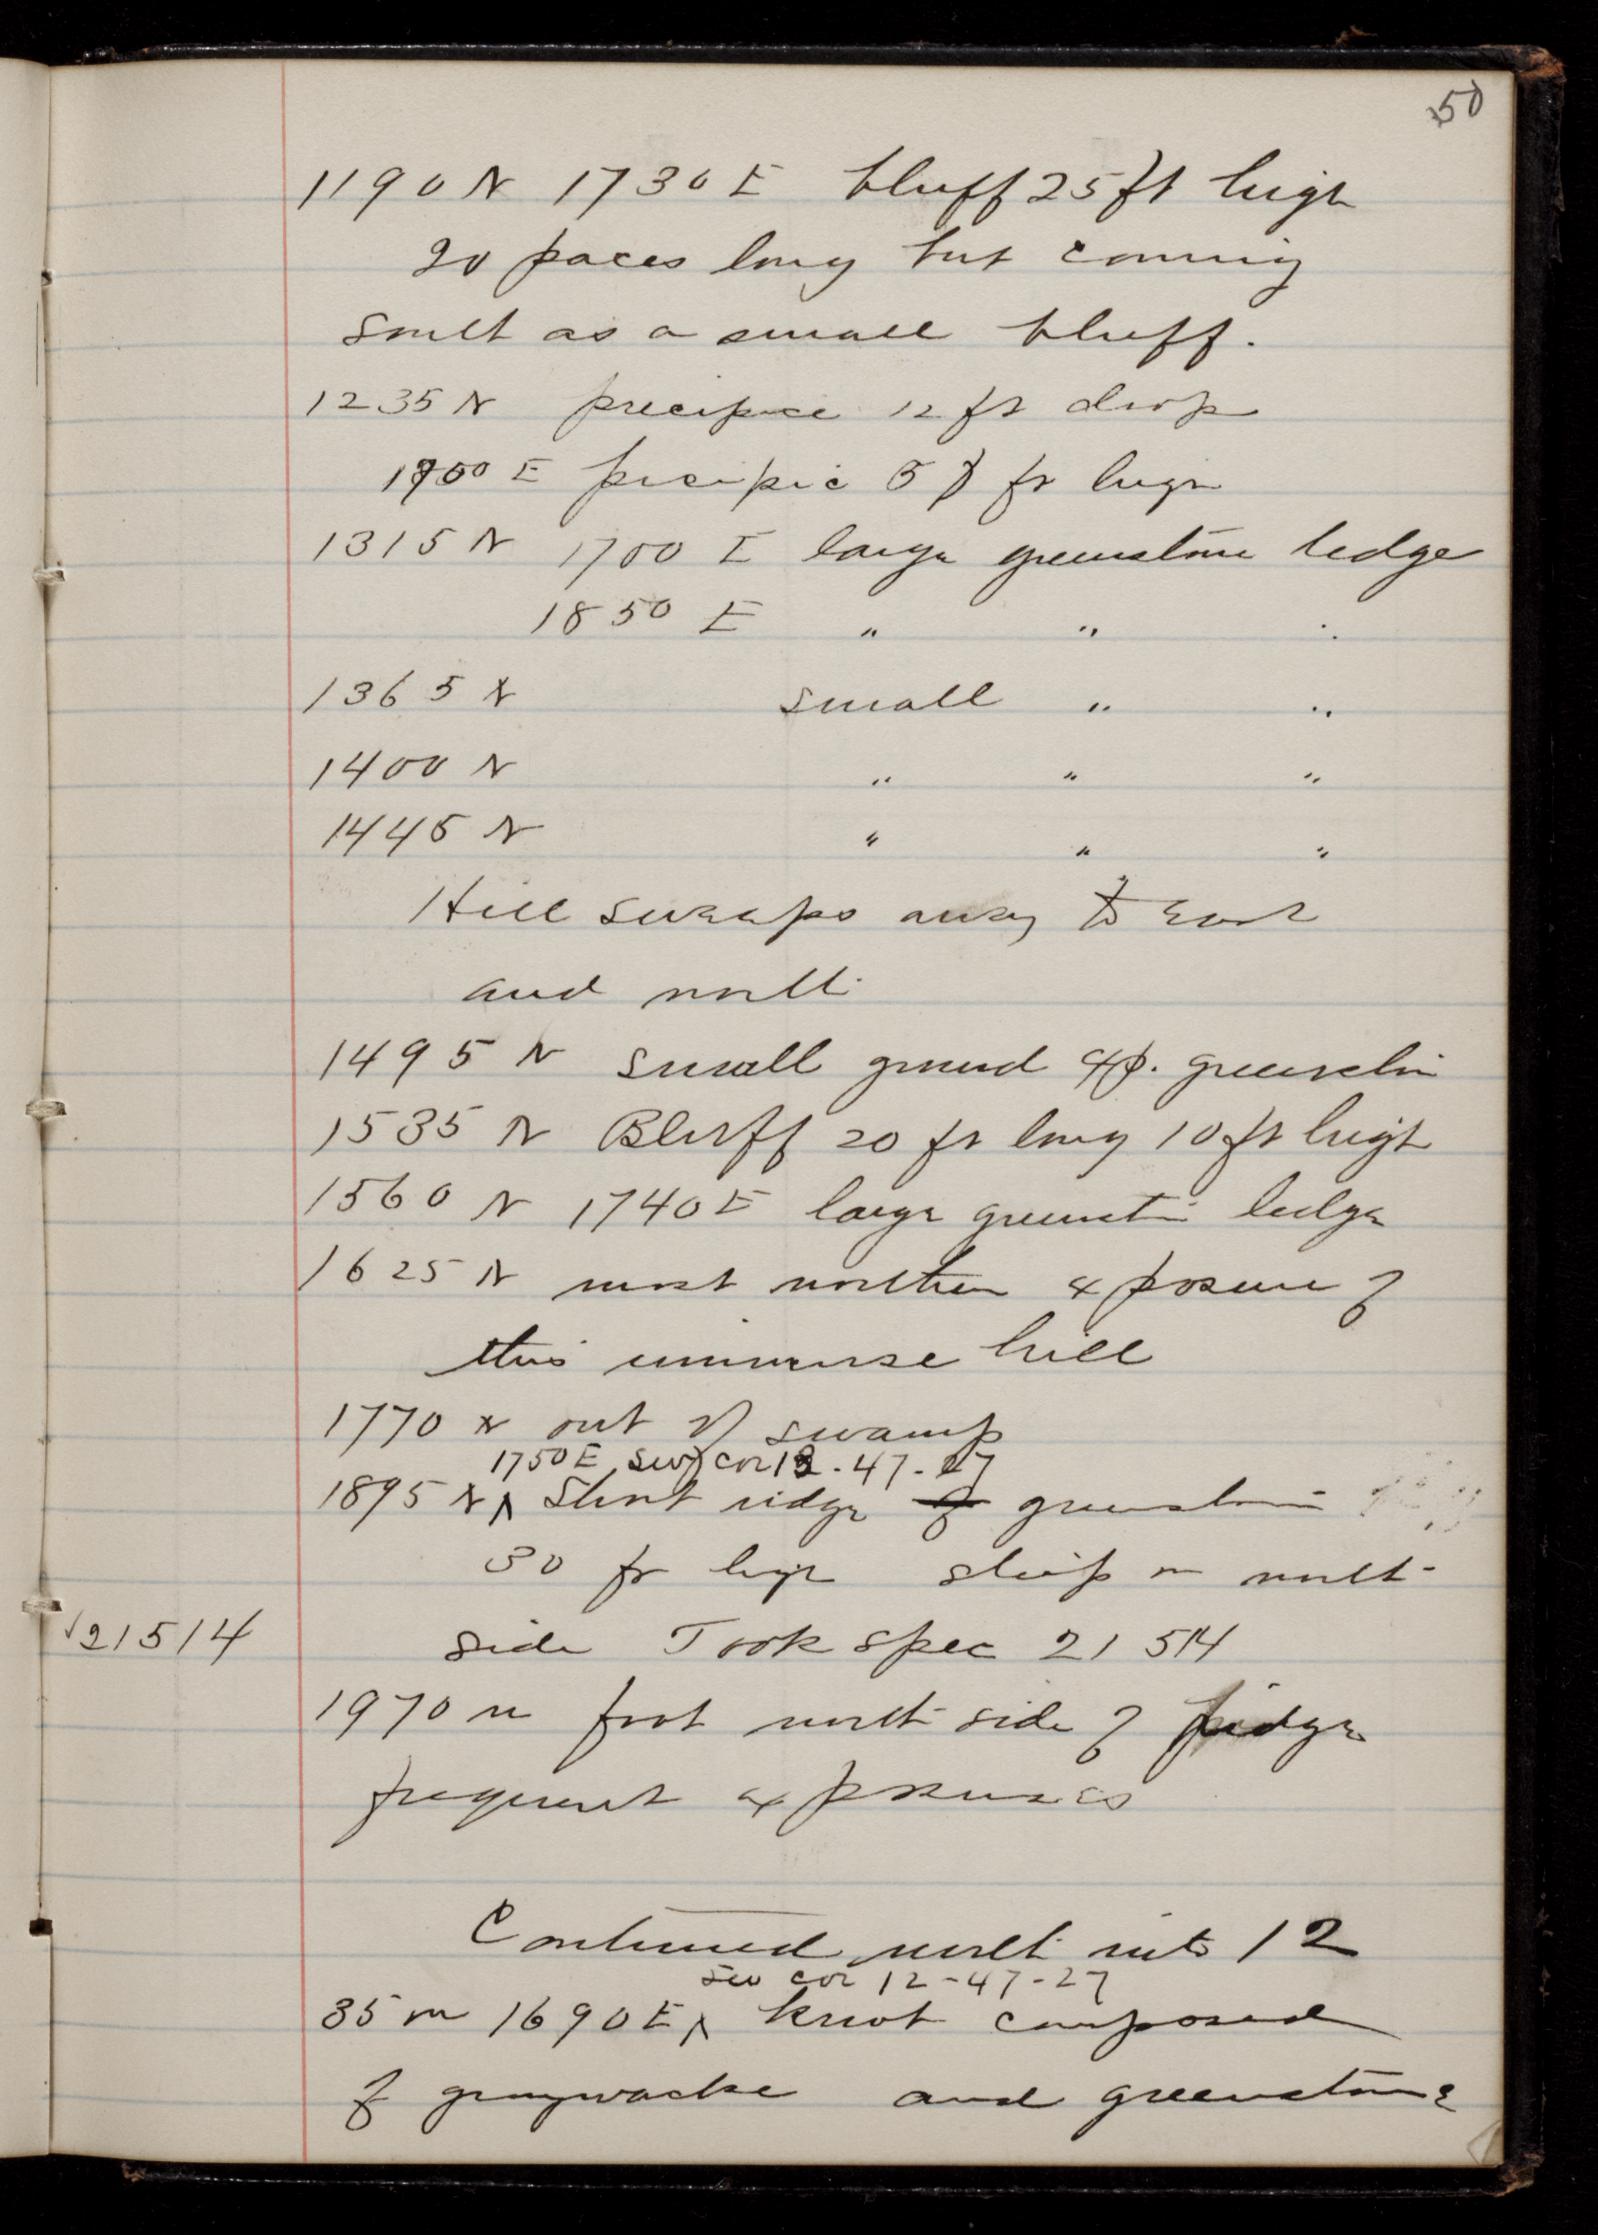 50
1190 N 1730 E bluff 25 ft high
20 paces long but coming
south as a small bluff.
1235 N precipice 12 ft drop
1700 E precipic 5 ft high
1315 N 1700 E large greenstone ledge
1850 E " " "
1365 N small " "
1400 N " " "
1445 N " " "
Hill sweeps away to East
and north
1495 N small ground exp. greenstone
1535 N Bluff 20 ft long 10 ft high
1560 N 1740 E large greenstone ledge
1625 N most northern exposure of
this immense hill
1770 N out of swamp
1750 E SW cor 13-47-27
1895 N ^ Short ridge of greenstone
30 ft high steep on north
21514 side Took spec 21514
1970 N foot north side of ridge
frequent exposures
Continued north into 12
SW cor 12-47-27
35 N 1690 E ^ knob composed
of graywacke and greenstone